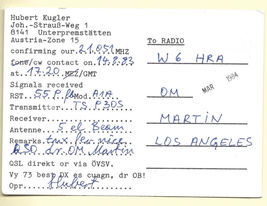 Hubert Kugler
Joh.-Strauß-Weg 1
8141 Unterpremstätten
Austria-Zone 15
To RADIO
confirming our 21.051 MHZ
W6HRA
fone/cw contact on 14.9.83
at 17.20 MEZ/GMT
MAR 1984
Signals received
OM
RST 55 Mod. A1A
Transmitter TS
MARTIN
Receiver
Antenna 5 el Beam
LOS ANGELES
Remarks tnx
QSO dr OM Martin
QSL direkt or via ÖVSV.
Vy 73 best DX es cuagn, dr OB!
Opr. Hubert